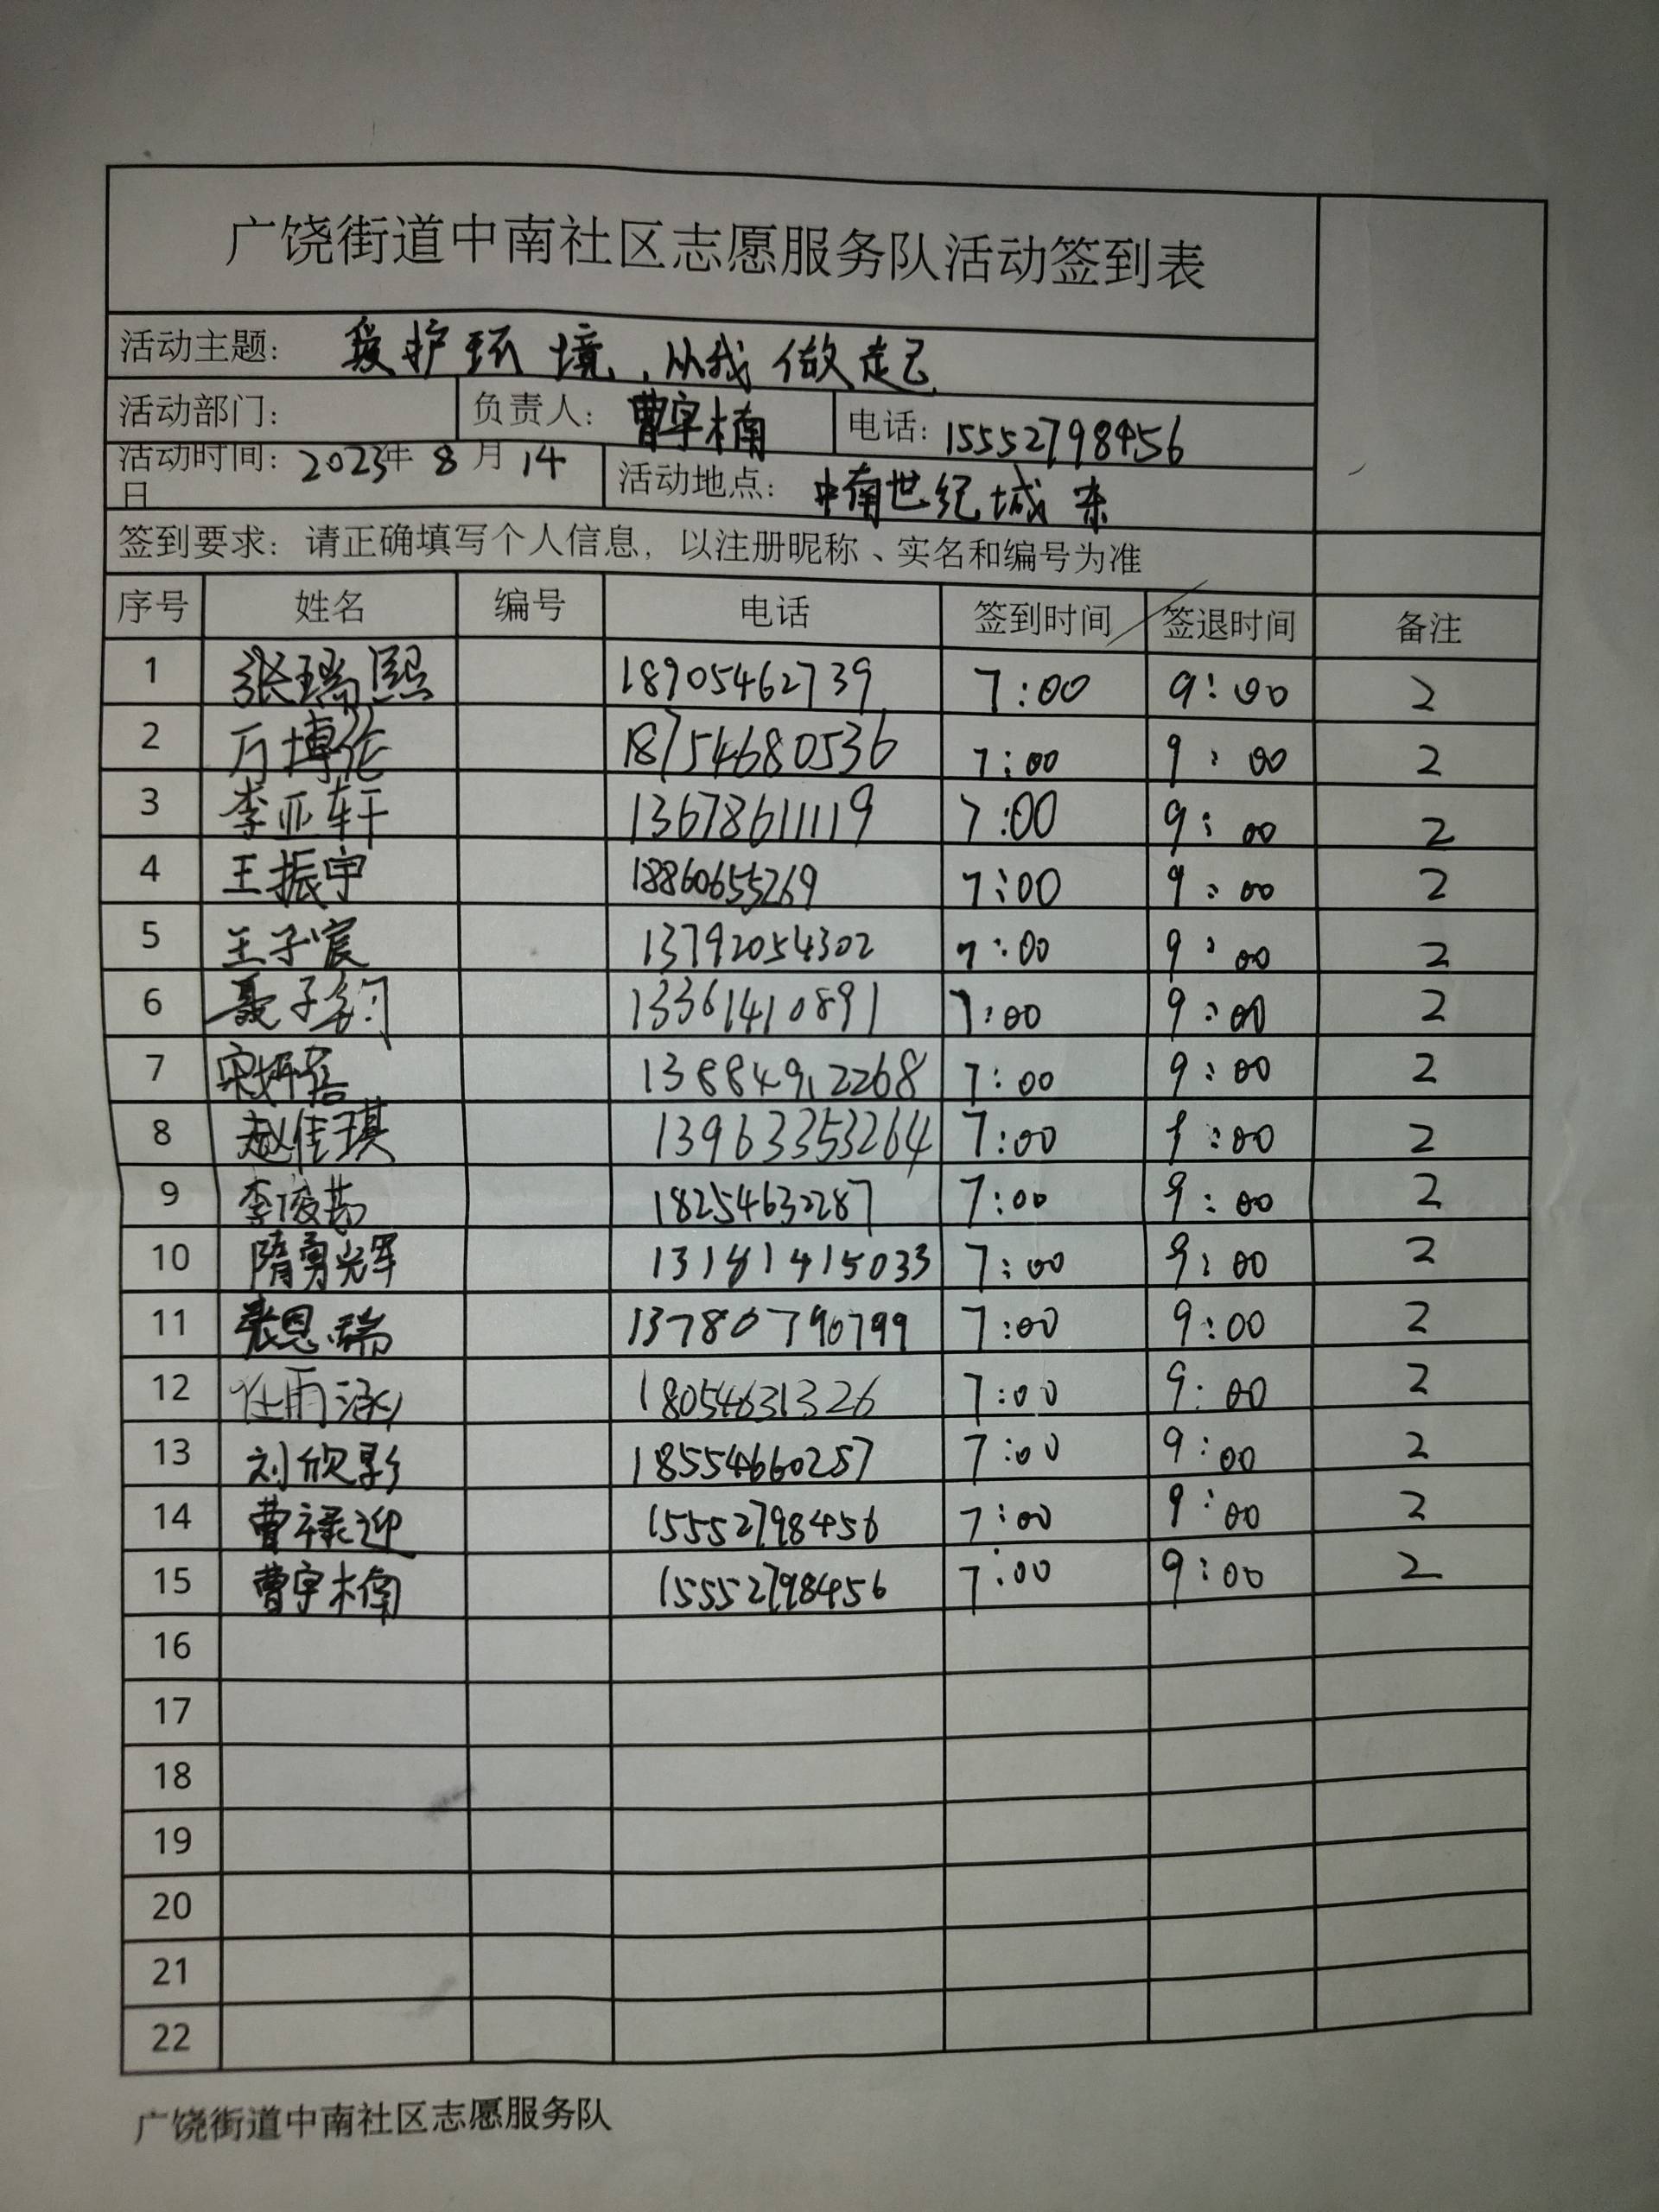 广饶街道中南社区志愿服务队活动签到表
活动主题： 爱护环境，从我做起
活动部门： 负责人：曹宇楠 电话：15552798456
活动时间：2023年8月14日 活动地点：中南世纪城东
签到要求：请正确填写个人信息，以注册昵称、实名和编号为准
序号 姓名 编号 电话 签到时间 签退时间 备注
1 张瑞熙 18905462739 7:00 9:00 2
2 万博伦 18754680536 7:00 9:00 2
3 李亚轩 13678611119 7:00 9:00 2
4 王振宇 18860655269 7:00 9:00 2
5 王子宸 13792054302 7:00 9:00 2
6 聂子钧 13361410891 7:00 9:00 2
7 13884912268 7:00 9:00 2
8 赵佳琪 13963353264 7:00 9:00 2
9 18254632287 7:00 9:00 2
10 隋勇光军 13181415033 7:00 9:00 2
11 张恩瑞 13780790799 7:00 9:00 2
12 任雨涵 18054631326 7:00 9:00 2
13 刘欣影 18554660287 7:00 9:00 2
14 曹禄迎 15552798456 7:00 9:00 2
15 曹宇楠 15552798456 7:00 9:00 2
16
17
18
19
20
21
22
广饶街道中南社区志愿服务队